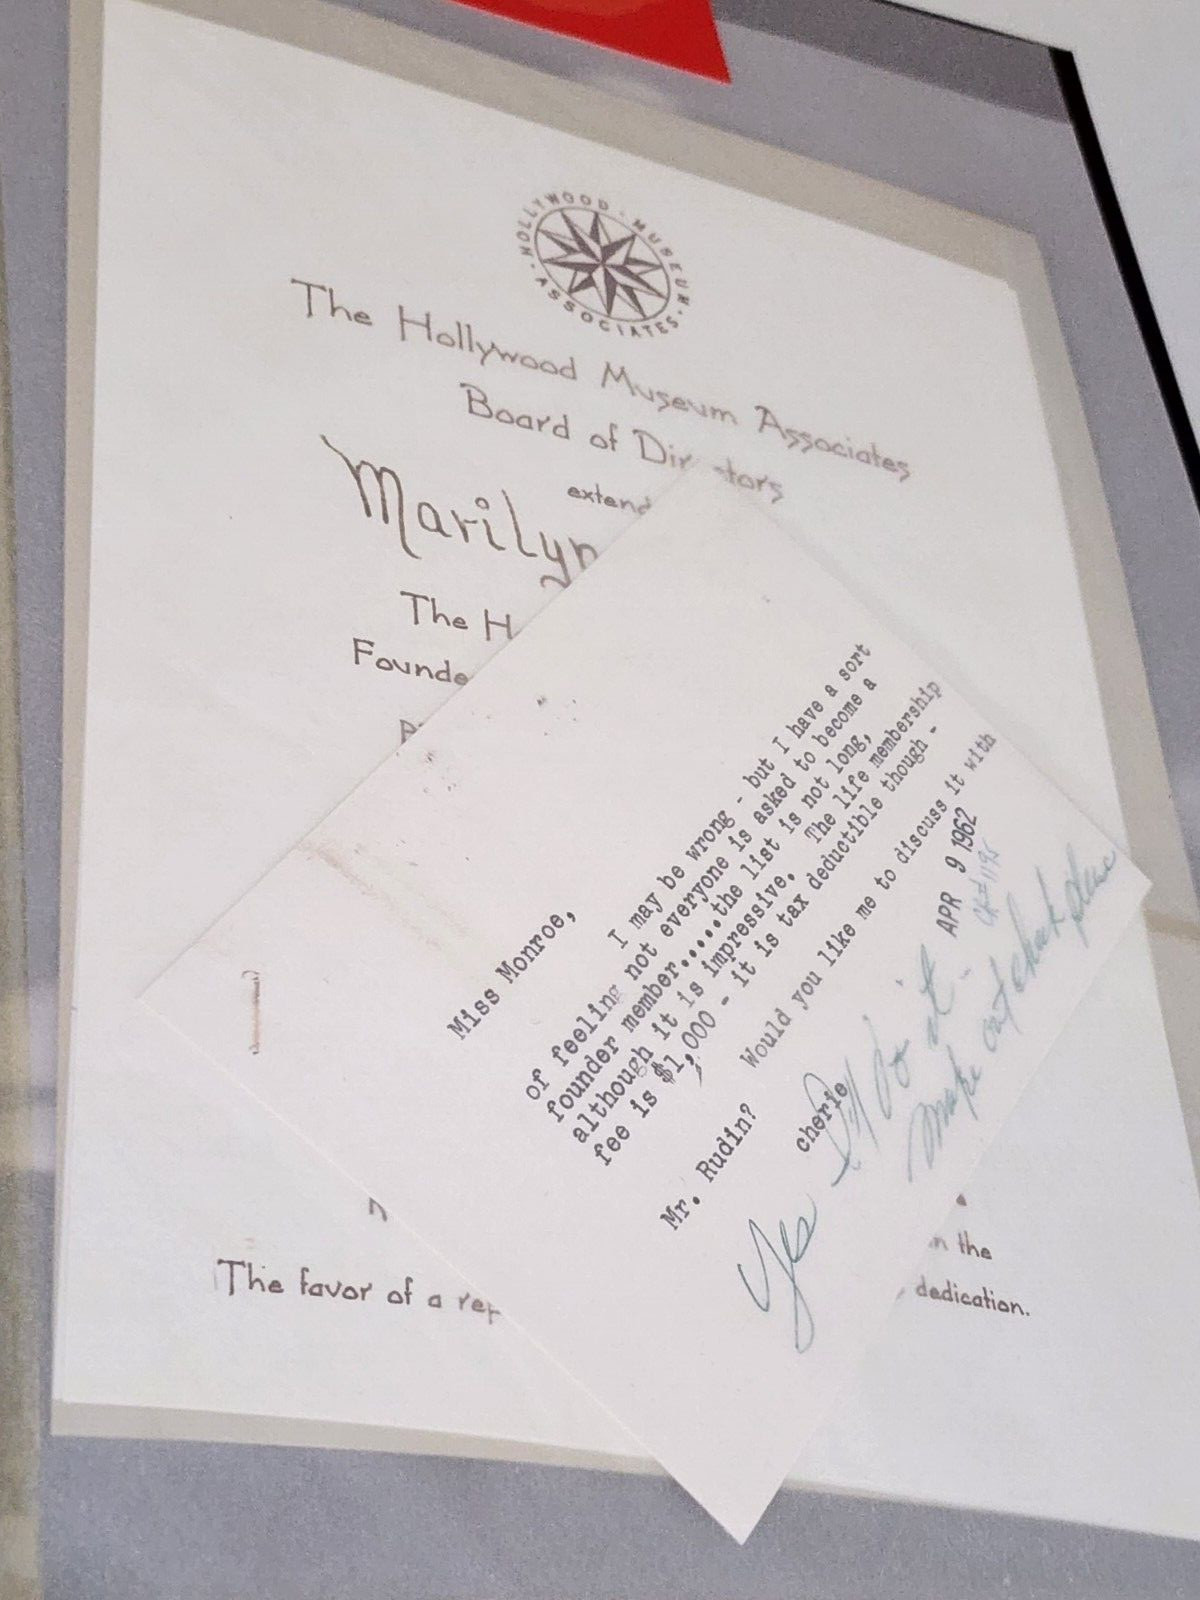 HOLLYWOOD · MUSEUM · ASSOCIATES ·
The Hollywood Museum Associates
Board of Dir tors
extend
Marilyn
The H
Founde
Miss Monroe,
I may be wrong - but I have a sort
of feeling not everyone is asked to become a
founder member.....the list is not long,
although it is impressive. The life membership
fee is $1,000 - it is tax deductible though -
Would you like me to discuss it with
Mr. Rudin?
cherie
APR 9 1962
ck#1195
Yes I'll do it -
make out check please
n the
The favor of a rep
dedication.